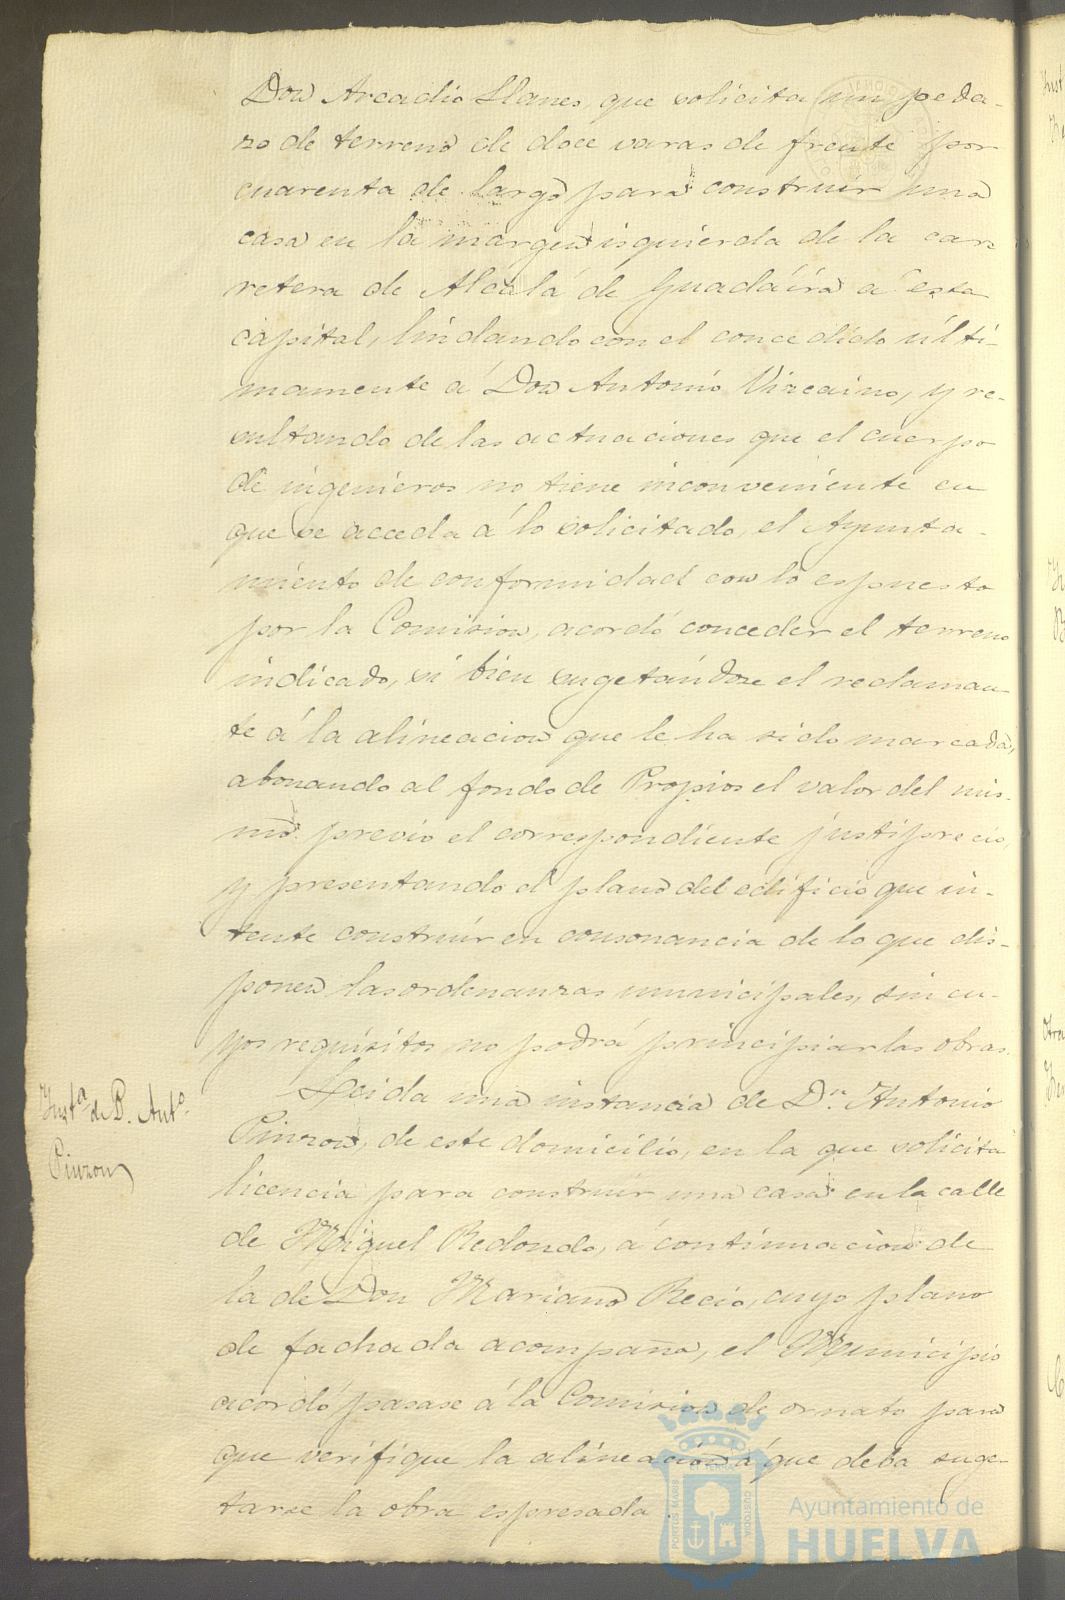 Don Arcadio Llanes, que solicita un peda-
zo de terreno de doce varas de frente por
cuarenta de largo para construir una
casa en la margen izquierda de la car
retera de Alcalá de Guadáira á esta
capital, lindando con el concedido últi-
mamente á Don Antonio Vizcaino, y re-
sultando de las actuaciones que el cuerpo
de ingenieros no tiene inconveniente en
que se acceda á lo solicitado, el Ayunta-
miento de conformidad con lo espuesto
por la Comision, acordó conceder el terreno
indicado, si bien sugetándose el reclaman-
te á la alineacion que le ha sido marcada,
abonando al fondo de Propios el valor del mis-
mo previo el correspondiente justiprecio,
y presentando el plano del edificio que in-
tente construir en consonancia de lo que dis-
ponen las ordenanzas municipales, sin cu-
yos requisitos no podrá principiar las obras.
Insta. de D. Anto.
Pinzon
Leida una instancia de Dn. Antonio
Pinzon, de este domicilio, en la que solicita
licencia para construir una casa en la calle
de Miguel Redondo, á continuacion de
la de Don Mariano Recio, cuyo plano
de fachada acompaña, el Municipio
acordó pasase á la Comision de ornato para
que verifique la alineacion á que deba suge-
tarse la obra espresada.
PORTUS MARIS
CUSTODIA
Ayuntamiento de
HUELVA